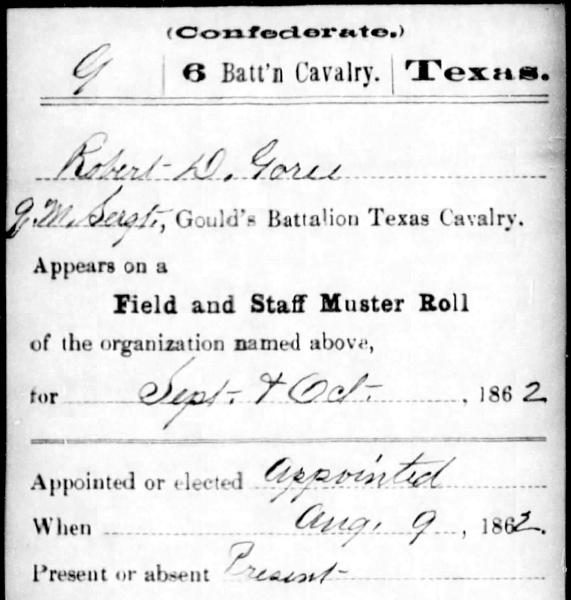 (Confederate.)
G | 6 Batt'n Cavalry. | Texas.
Robert D. Goree
Q. M. Sergt., Gould's Battalion Texas Cavalry.
Appears on a
Field and Staff Muster Roll
of the organization named above,
for Sept. & Oct. , 1862
Appointed or elected Appointed
When Aug. 9 , 1862.
Present or absent Present